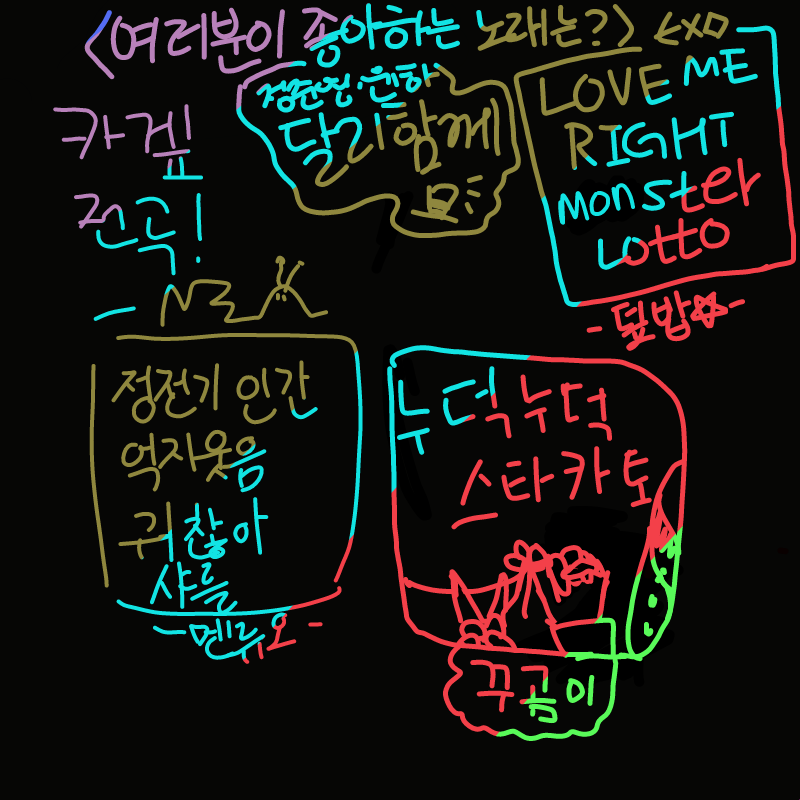 <여러분이 좋아하는 노래는?>
EXO
LOVE ME
RIGHT
monster
Lotto
-덮밥☆-
정준영·윤하
달리함께
카겦
전곡!
정전기 인간
억지웃음
귀찮아
샤를
-멘류오-
누덕누덕
스타카토
꾸곰이